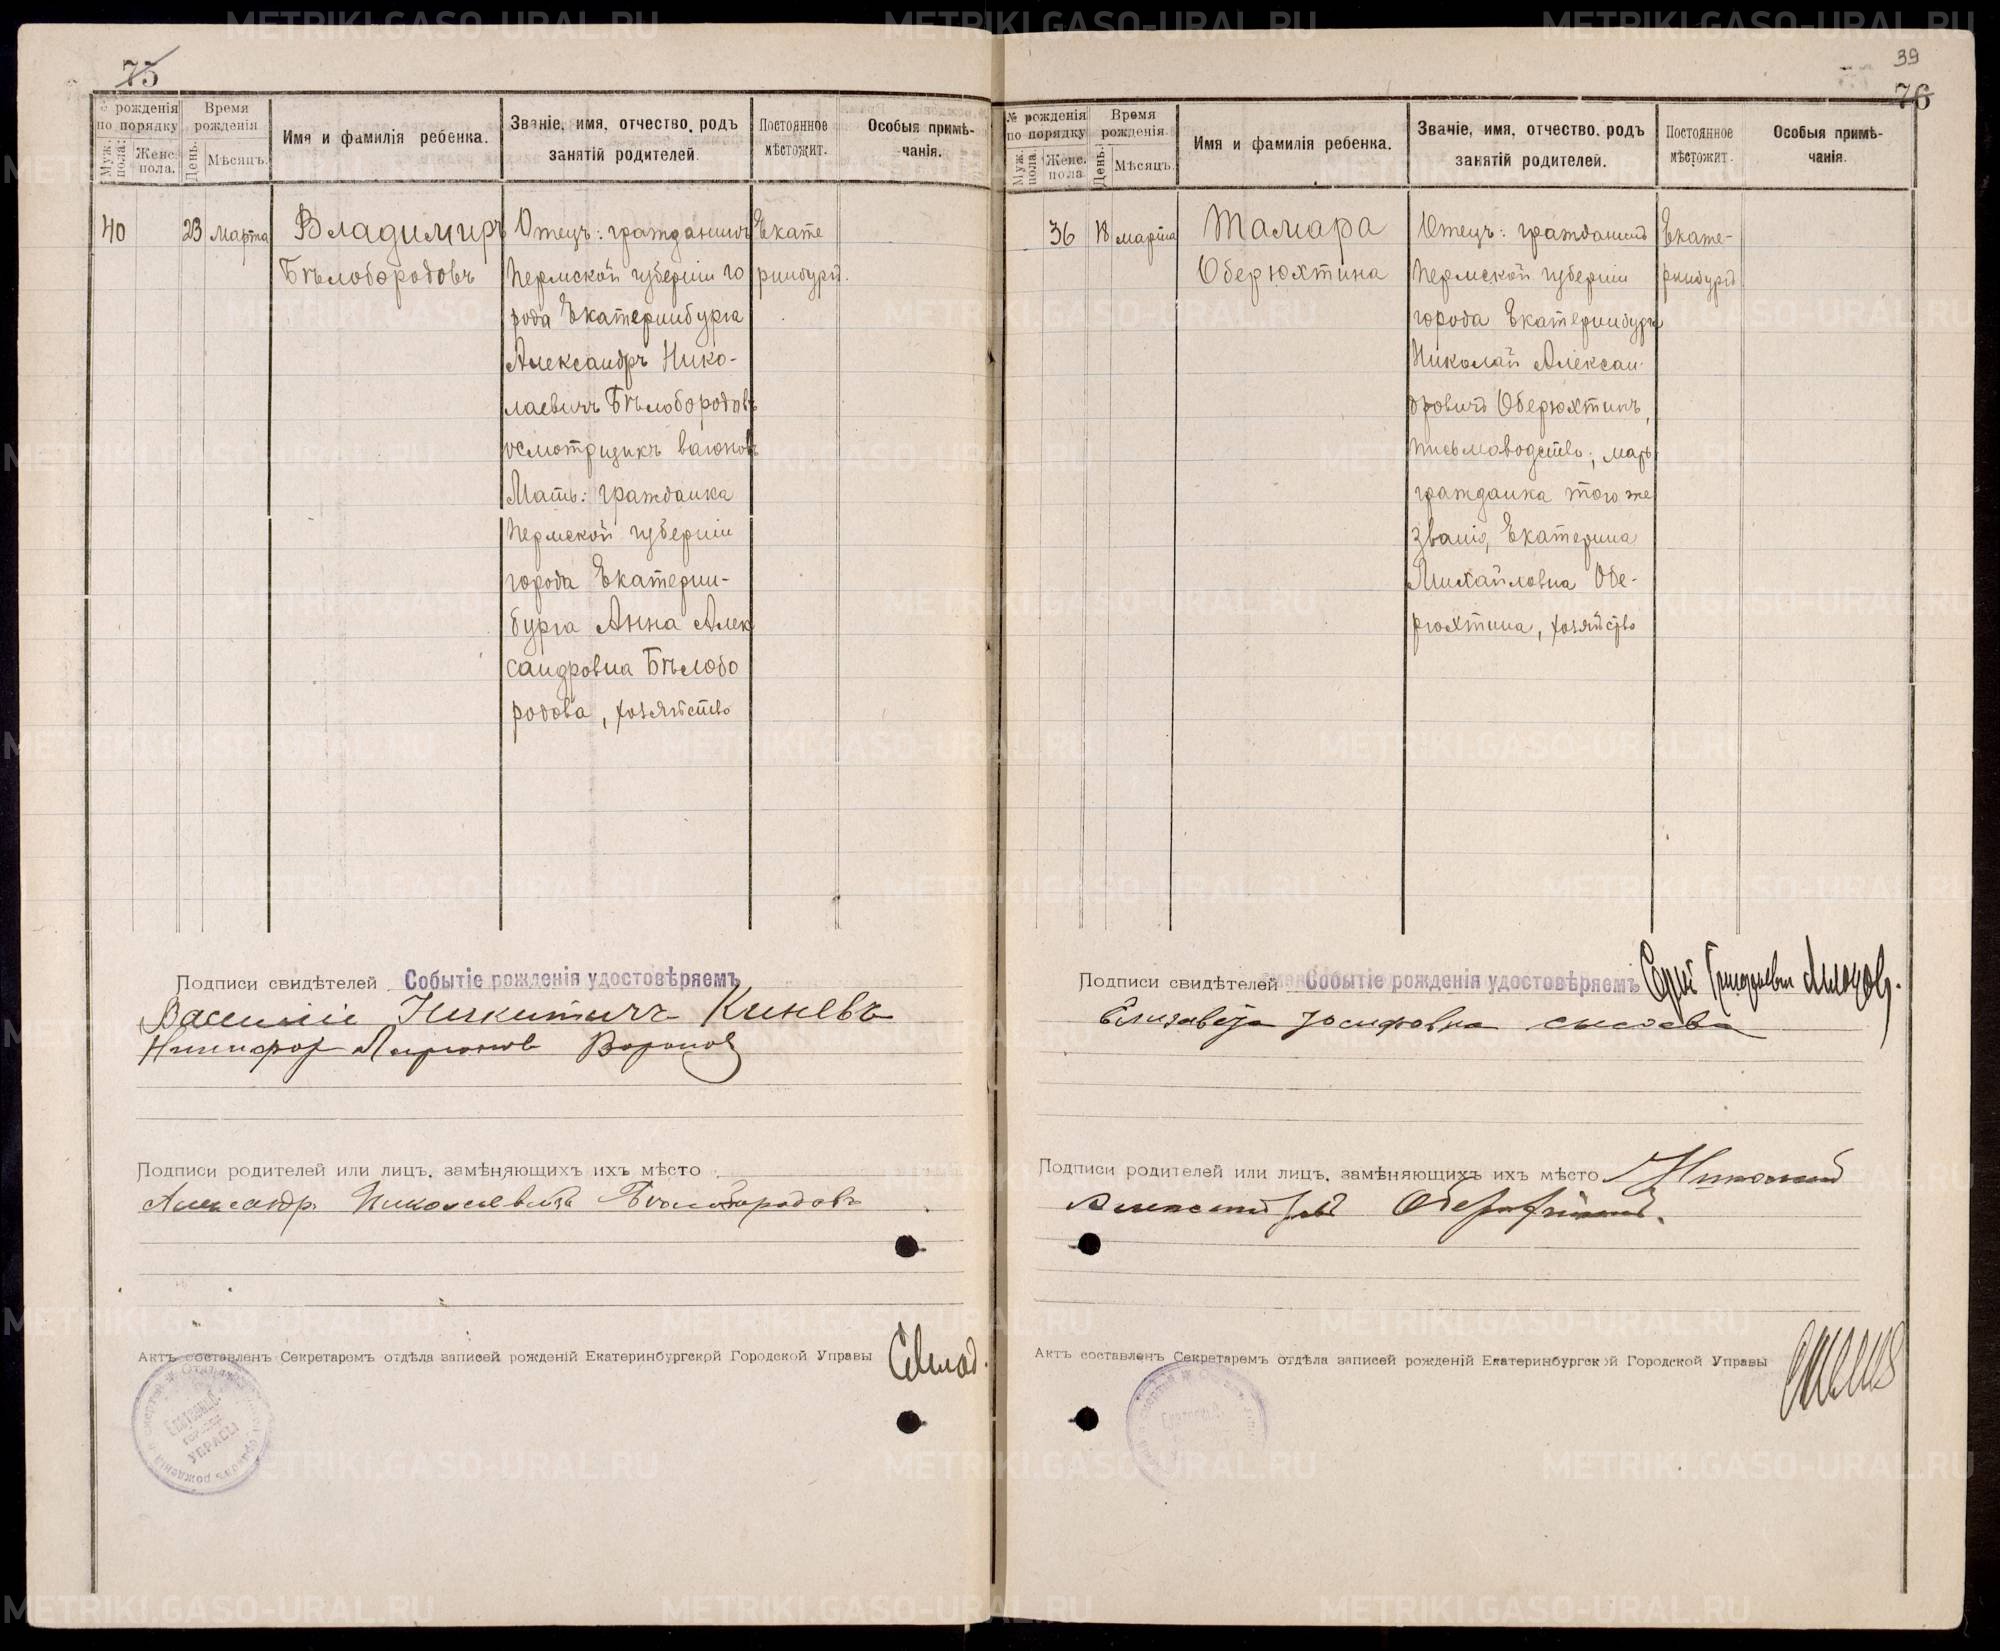 75
№ рожденія по порядку
Муж. пола.
Женс. пола.
Время рожденія
День.
Мѣсяцъ.
Имя и фамилія ребенка.
Званіе, имя, отчество, родъ занятій родителей.
Постоянное мѣстожит.
Особыя примѣчанія.
40
23 марта
Владимиръ
Бѣлобородовъ
Отецъ: гражданинъ
Пермской губерніи го
рода Екатеринбурга
Александръ Нико-
лаевичъ Бѣлобородовъ
осмотрщикъ вагоновъ
Мать: гражданка
Пермской губерніи
города Екатерин-
бурга Анна Алек
сандровна Бѣлобо
родова, хозяйство
Екате
ринбургъ.
Подписи свидѣтелей Событіе рожденія удостовѣряемъ
Василий Никитичъ Киневъ
Никифор Ларионов Воронов
Подписи родителей или лицъ, замѣняющихъ ихъ мѣсто
Александр Николаевичъ Бѣлобородовъ
Актъ составленъ Секретаремъ отдѣла записей рожденій Екатеринбургской Городской Управы
УПРАВЫ
39
76
№ рожденія по порядку
Муж. пола.
Женс. пола
Время рожденія
День.
Мѣсяцъ.
Имя и фамилія ребенка.
Званіе, имя, отчество, родъ занятій родителей.
Постоянное мѣстожит.
Особыя примѣчанія.
36
18 марта
Тамара
Оберюхтина
Отецъ: гражданинъ
Пермской губерніи
города Екатеринбурга
Николай Алексан-
дровичъ Оберюхтинъ,
письмоводство; мать
гражданка того же
званія, Екатерина
Михайловна Обе-
рюхтина, хозяйство
Екате-
ринбургъ
Подписи свидѣтелей Событіе рожденія удостовѣряемъ
Елизавета Иосифовна Сысоева
Подписи родителей или лицъ, замѣняющихъ ихъ мѣсто Николай
Александров Оберюхтин.
Актъ составленъ Секретаремъ отдѣла записей рожденій Екатеринбургской Городской Управы
METRIKI.GASO-URAL.RU